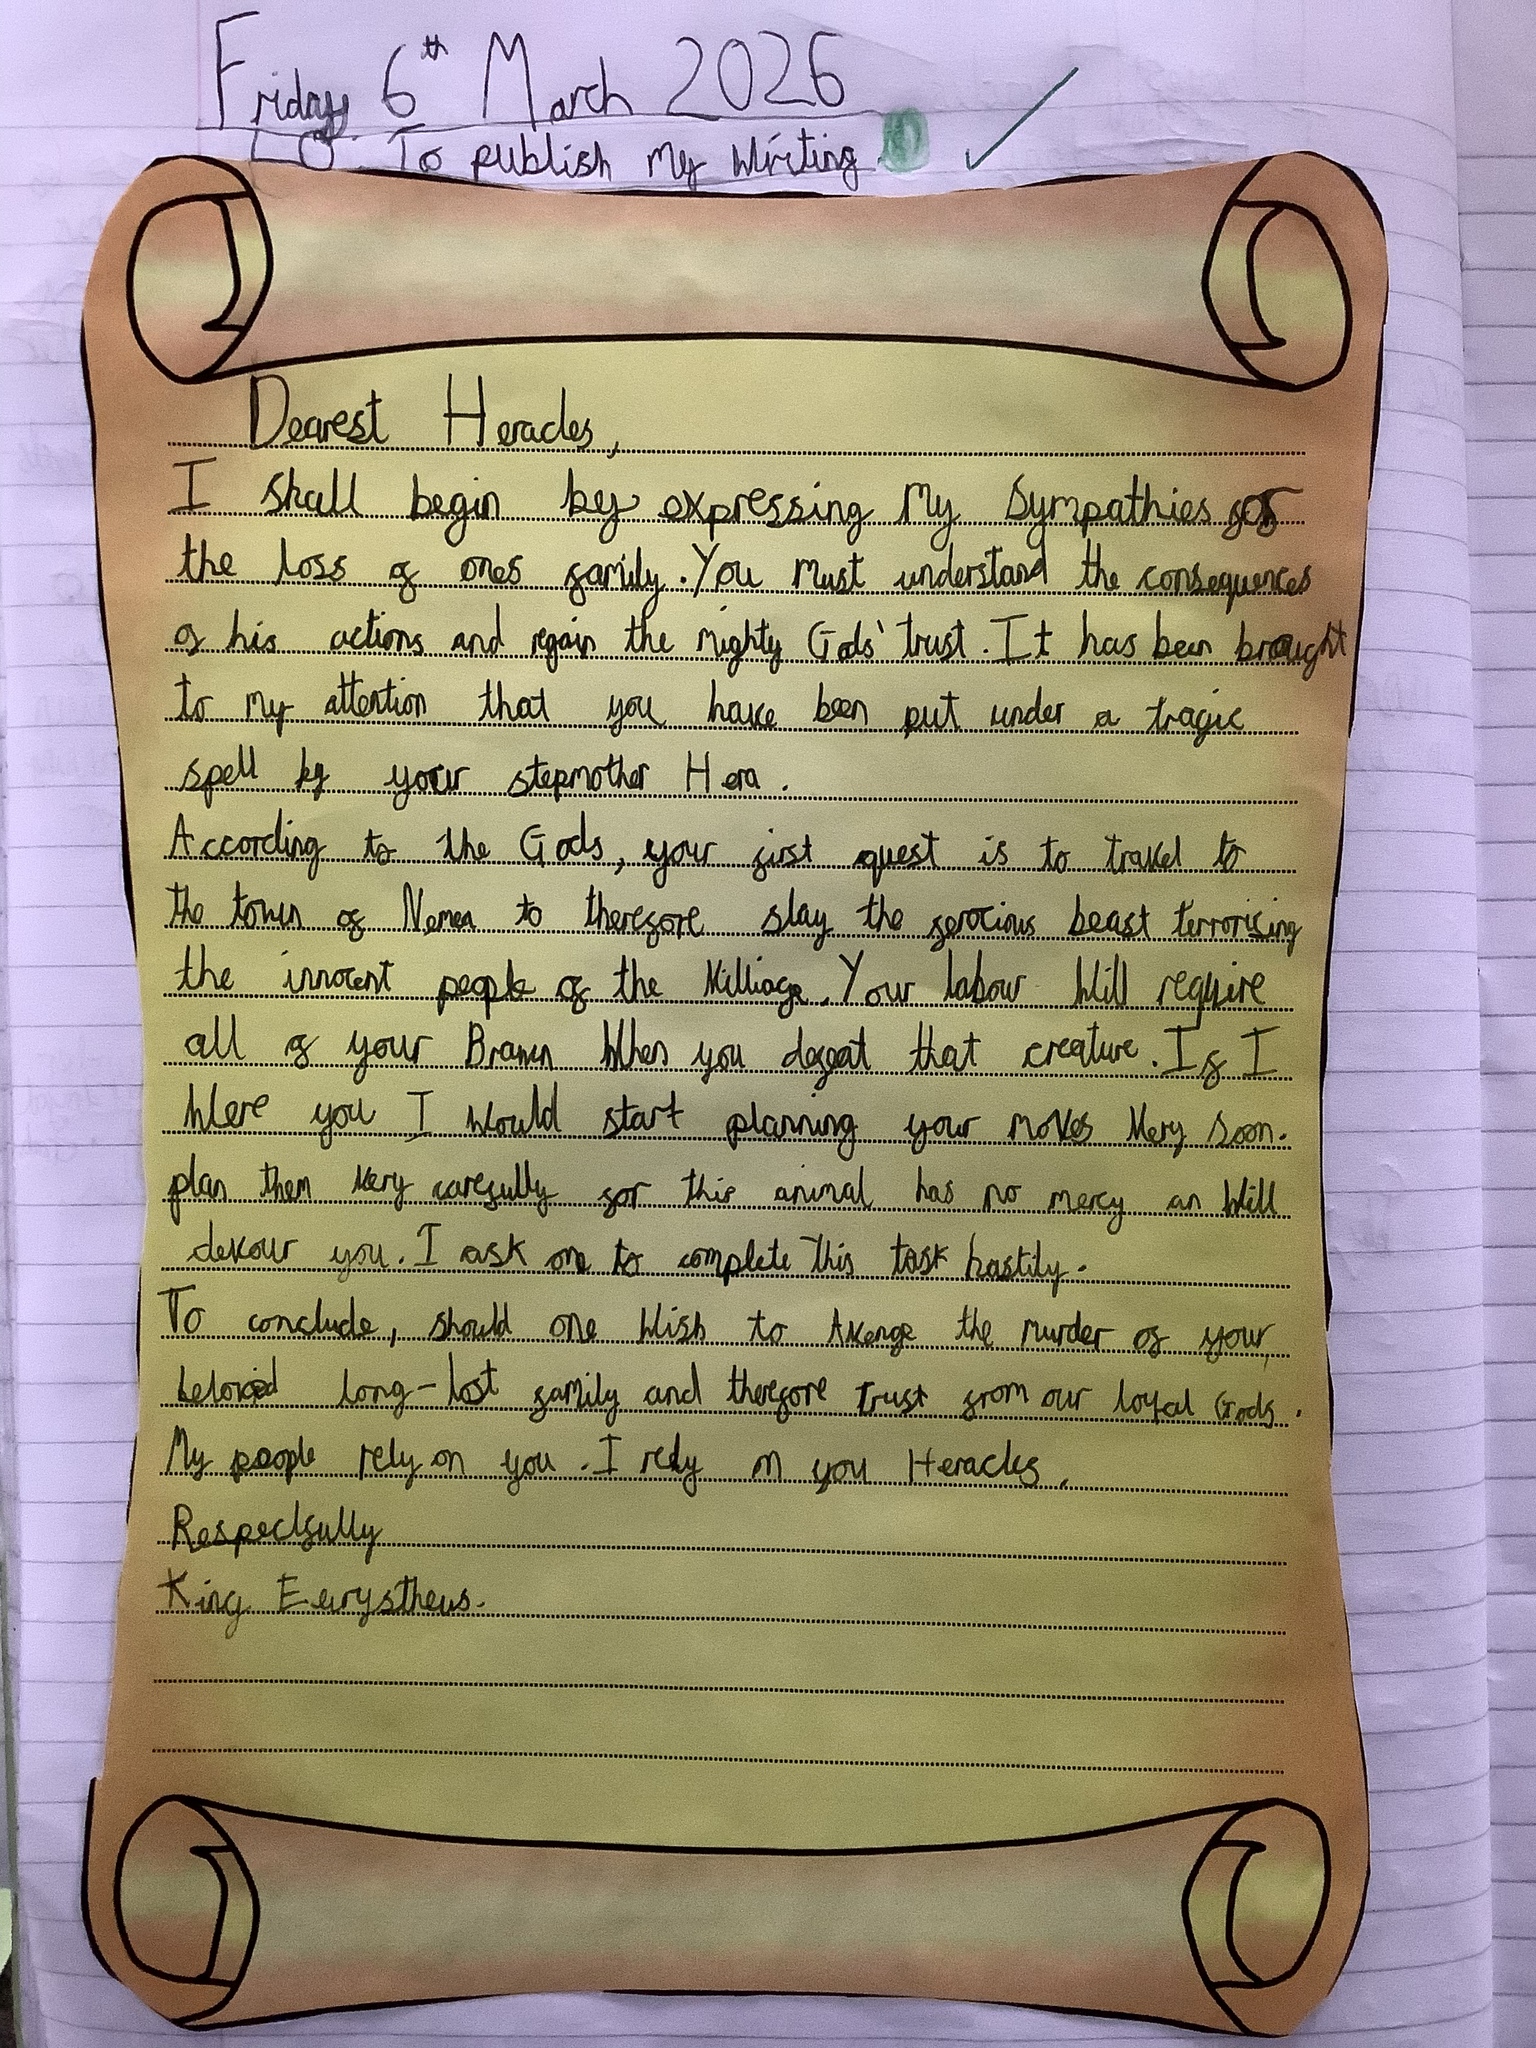 Friday 6th March 2026
LO: To publish my writing
Dearest Heracles,
I shall begin by expressing My Sympathies for
the loss of ones family. You must understand the consequences
of his actions and regain the mighty Gods' trust. It has been brought
to my attention that you have been put under a tragic
spell by your stepmother Hera.
According to the Gods, your first quest is to travel to
the town of Nemea to therefore slay the ferocious beast terrorising
the innocent people of the Villiage. Your labour will require
all of your Brawn When you defeat that creature. If I
Were you I would start planning your moves Very soon.
plan them Very carefully for this animal has no mercy an will
devour you. I ask one to complete this task hastily.
To conclude, should one wish to Avenge the murder of your
beloved long-lost family and therefore trust from our loyal Gods.
My people rely on you. I redy on you Heracles.
Respectfully
King Eurystheus.